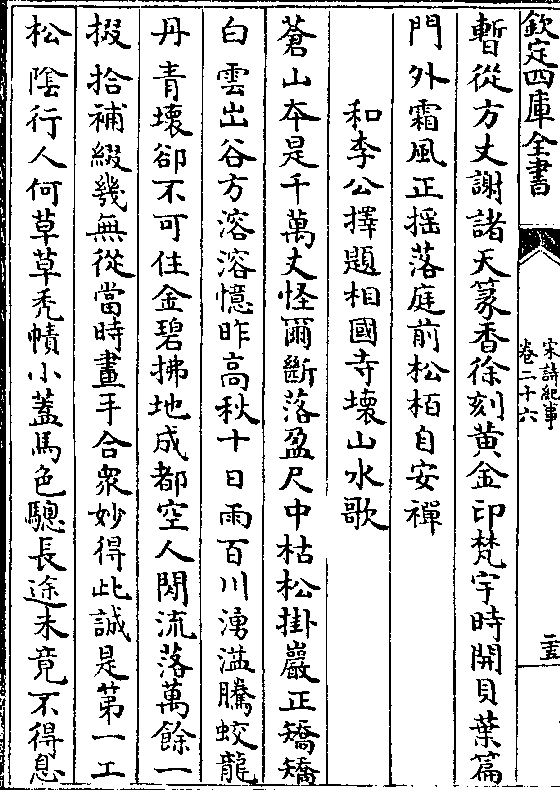 欽定四庫全書
宋詩紀事
卷二十六
二五
暫從方丈謝諸天篆香徐刻黄金印梵宇時開貝葉篇
門外霜風正揺落庭前松栢自安禪
和李公擇題相國寺壞山水歌
蒼山夲是千萬丈怪爾斷落盈尺中枯松掛巖正矯矯
白雲出谷方溶溶憶昨髙秋十日雨百川湧溢騰蛟龍
丹青壞卻不可住金碧拂地成都空人閒流落萬餘一
掇拾補綴幾無從當時畫手合衆妙得此誠是第一工
松陰行人何草草秃幘小蓋馬色驄長途未竟不得息